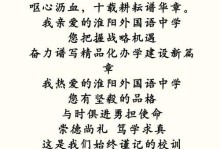 呕心沥血，十载耕耘谱华章。
我亲爱的淮阳外国语中学
您把握战略机遇
奋力谱写精品化办学建设新篇
章
我热爱的淮阳外国语中学
您有坚毅的品格
与时俱进勇担使命
崇德尚礼 笃学求真
这是我们始终谨记的校训